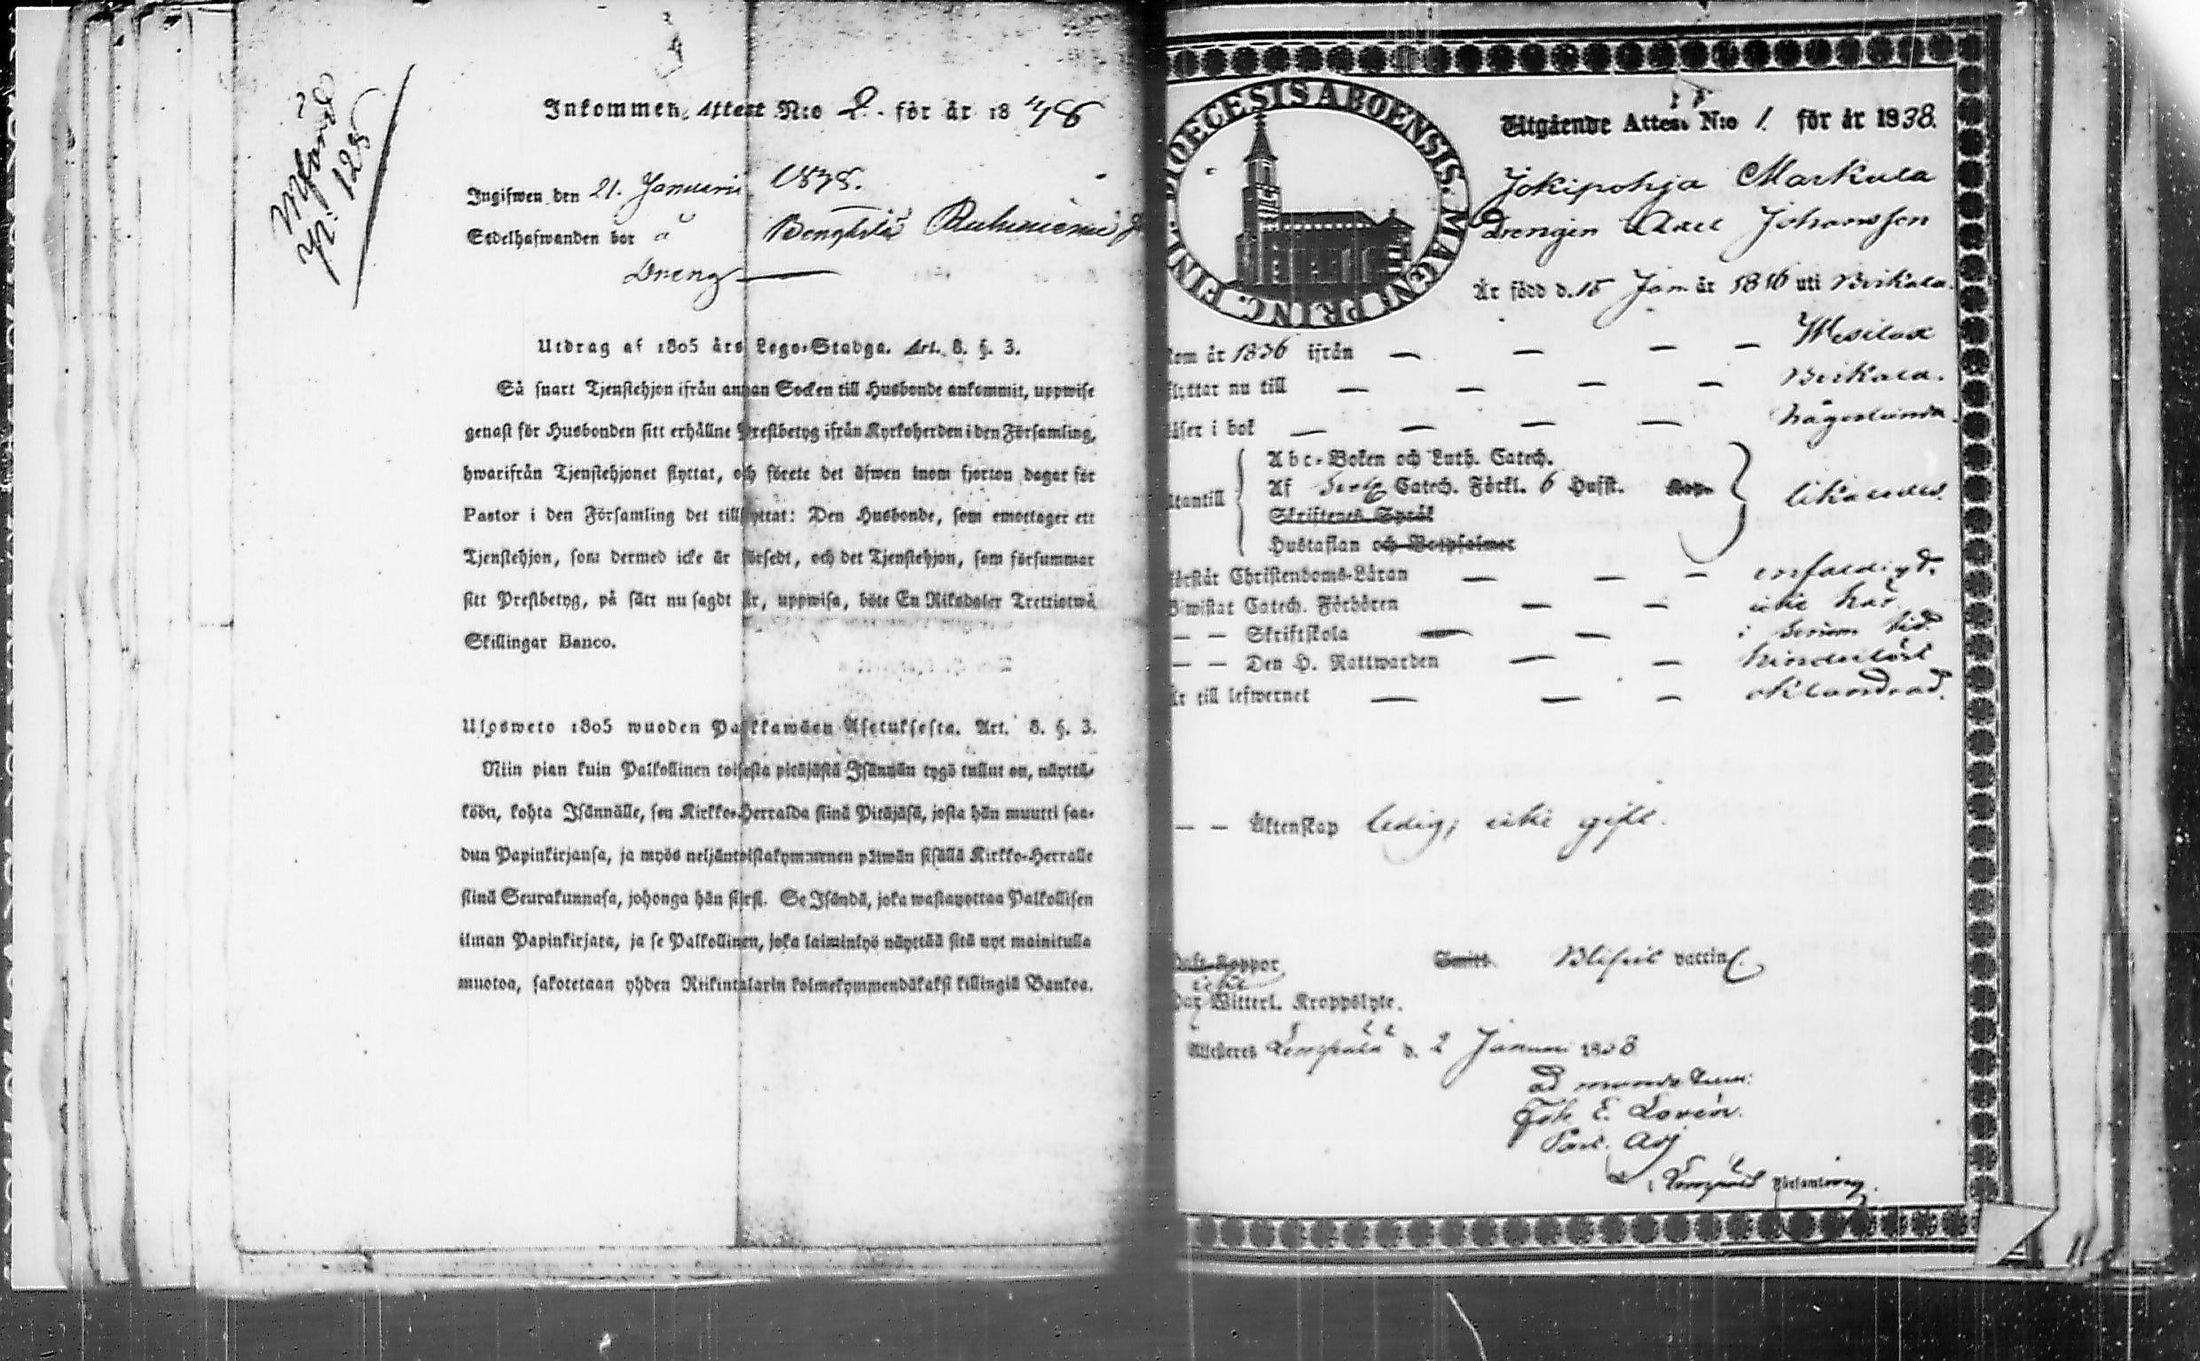 Inkommen, Attest N:o 2. för år 18
Ingifwen den 21. Januarii 1838.
Sedelhafwanden bor å Bengtilä
Dreng
Utdrag af 1805 års Lego-Stadga. Art. 8. §. 3.
Så snart Tjenstehjon ifrån annan Socken till Husbonde ankommit, uppwise
genast för Husbonden sitt erhållne Prestbetyg ifrån Kyrkoherden i den Församling,
hwarifrån Tjenstehjonet flyttat, och förete det äfwen inom fjorton dagar för
Pastor i den Församling det tillflyttat: Den Husbonde, som emottager ett
Tjenstehjon, som dermed icke är försedt, och det Tjenstehjon, som försummar
sitt Prestbetyg, på sätt nu sagdt är, uppwisa, böte En Riksdaler Trettiotwå
Skillingar Banco.
Ulosweto 1805 wuoden Palkkawäen Asetuksesta. Art. 8. §. 3.
Niin pian kuin Palkollinen toisesta pitäjästä Isännän tygö tullut on, näyttä-
köön, kohta Isännälle, sen Kirkko-Herralda siinä Pitäjäsä, josta hän muutti saa-
dun Papinkirjansa, ja myös neljäntoistakymmenen päiwän sisällä Kirkko-Herralle
siinä Seurakunnasa, johonga hän siirsi. Se Isändä, joka wastaanottaa Palkollisen
ilman Papinkirjata, ja se Palkollinen, joka laiminlyö näyttää sitä nyt mainitulla
muotoa, sakotetaan yhden Riikintalarin kolmekymmendäkaksi killingiä Bankoa.
DIOECESIS ABOENSIS. MAGNI PRINC. FINL.
Utgående Attest N:o 1. för år 1838.
Jokipohja Markula
Drengen Axel Johansson
Är född d. 15 Jan år 1816 uti Birkala.
kom år 1836 ifrån — — — — Wesilax
flyttar nu till — — — — Birkala.
läser i bok — — — — någorlunda.
Abc-Boken och Luth. Catech.
utantill Af Catech. Förkl. 6 Hufst. likaledes.
Skriftenes Språk
Hustaflan och Botpsalmer
förstår Christendoms-Läran — — — enfaldigt.
Biwistat Catech. Förhören — — icke här.
— — Skriftskola — — i sinom tid.
— — Den H. Nattwarden — — hinderlöst
Är till lefwernet — — — oklandrad.
— — Äktenskap ledig; icke gift.
Haft Koppor Smitt. Blifvit vaccin
icke
Har Witterl. Kroppslyte.
Attesteres Lempälä d. 2 Januari 1838
Ad mandatum:
Joh E. Lovén.
Past. Adj
i Lempälä Församling.